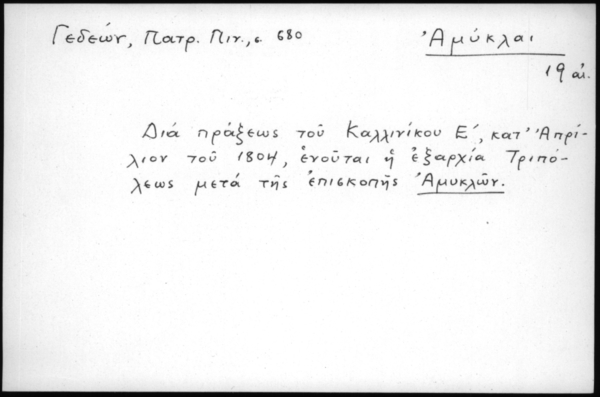 Γεδεών, Πατρ. Πιν., σ. 680
Ἀμύκλαι
19 αἰ.
Διά πράξεως τοῦ Καλλινίκου Ε΄, κατ' Ἀπρί-
λιον τοῦ 1804, ἑνοῦται ἡ ἐξαρχία Τριπό-
λεως μετά τῆς ἐπισκοπῆς Ἀμυκλῶν.